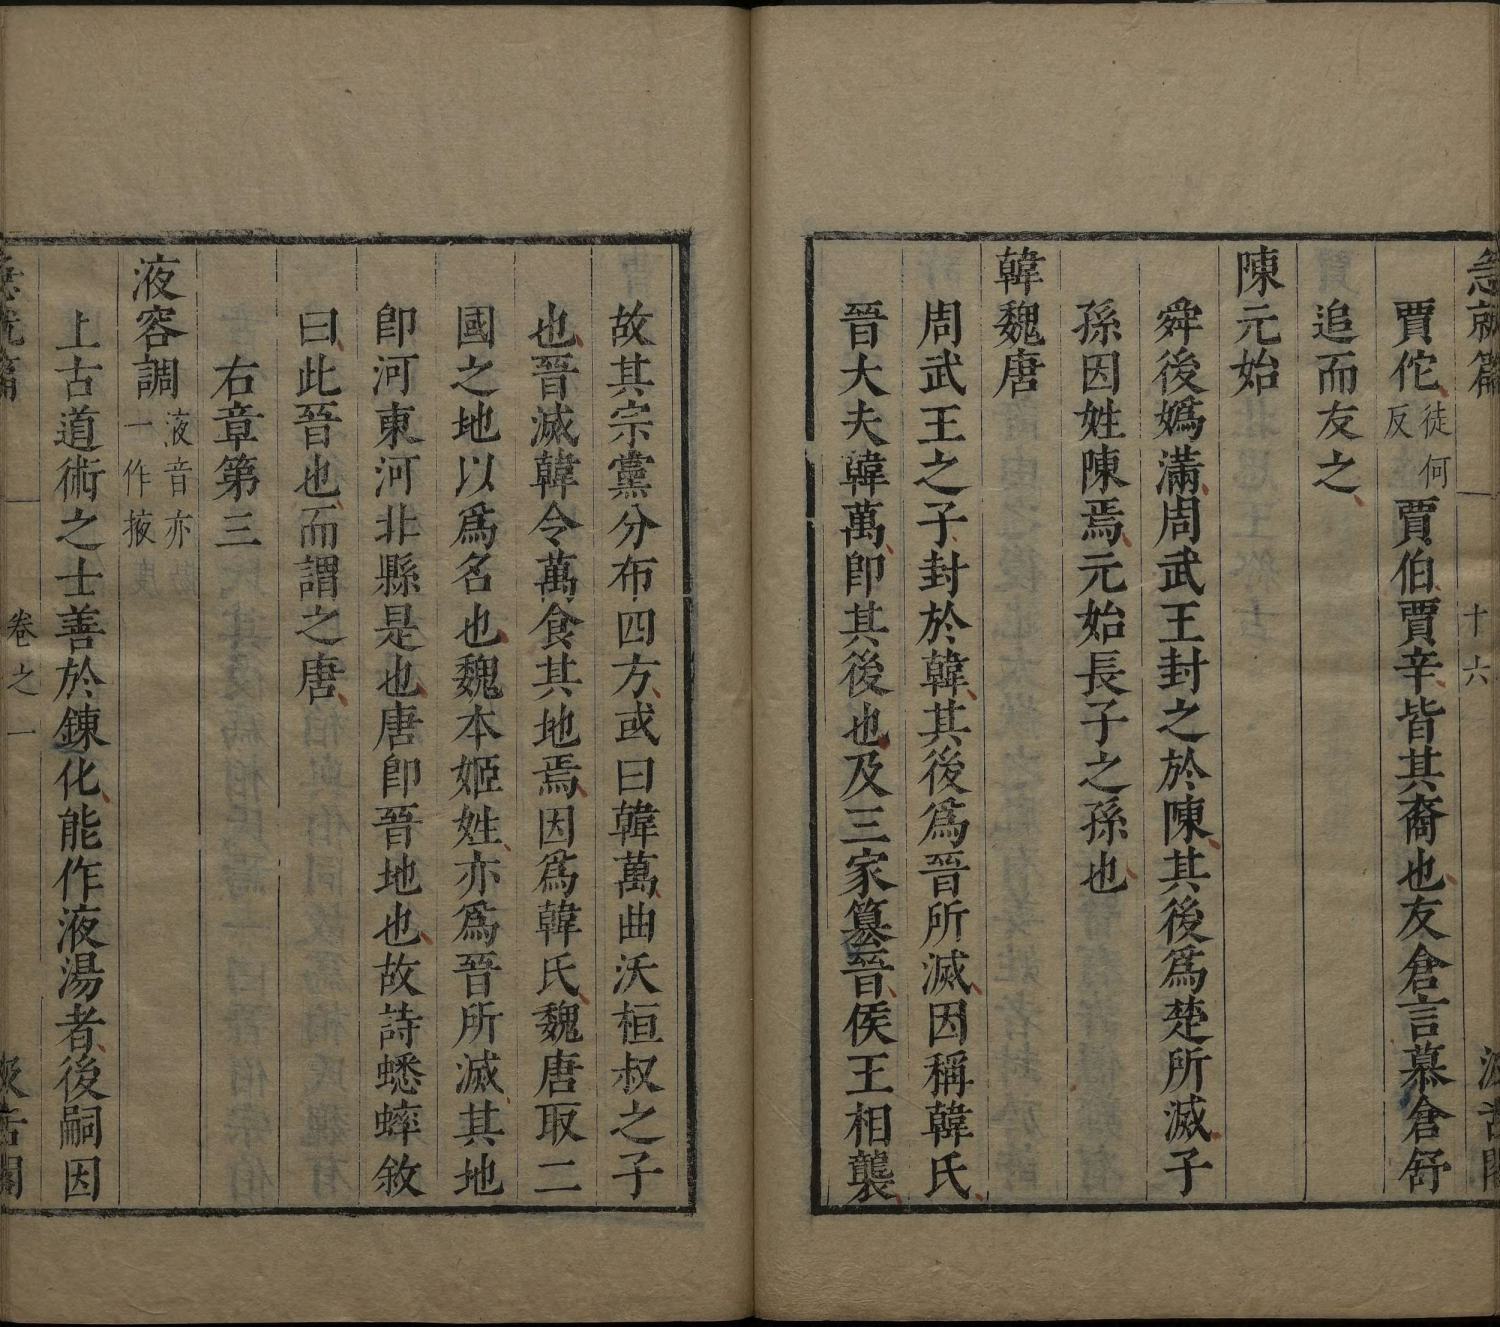 急就篇 十六 汲古閣
賈佗徒何反賈伯賈辛皆其裔也友倉言慕倉舒
追而友之
陳元始
舜後嬀滿周武王封之於陳其後爲楚所滅子
孫因姓陳焉元始長子之孫也
韓魏唐
周武王之子封於韓其後爲晉所滅因稱韓氏
晉大夫韓萬卽其後也及三家篡晉侯王相襲
故其宗黨分布四方或曰韓萬曲沃桓叔之子
也晉滅韓令萬食其地焉因爲韓氏魏唐取二
國之地以爲名也魏本姬姓亦爲晉所滅其地
卽河東河非縣是也唐卽晉地也故詩蟋蟀敘
曰此晉也而謂之唐
右章第三
液容調液音亦一作掖
上古道術之士善於鍊化能作液湯者後嗣因
急就篇 卷之一 汲古閣